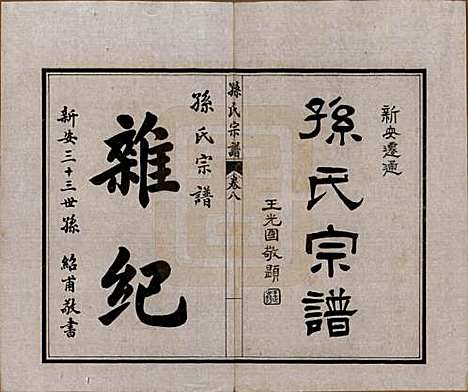 新安遷通
孫氏宗譜
王光圖敬題
孫氏宗譜
卷八
孫氏宗譜
雜紀
新安三十三世孫 紹甫敬書